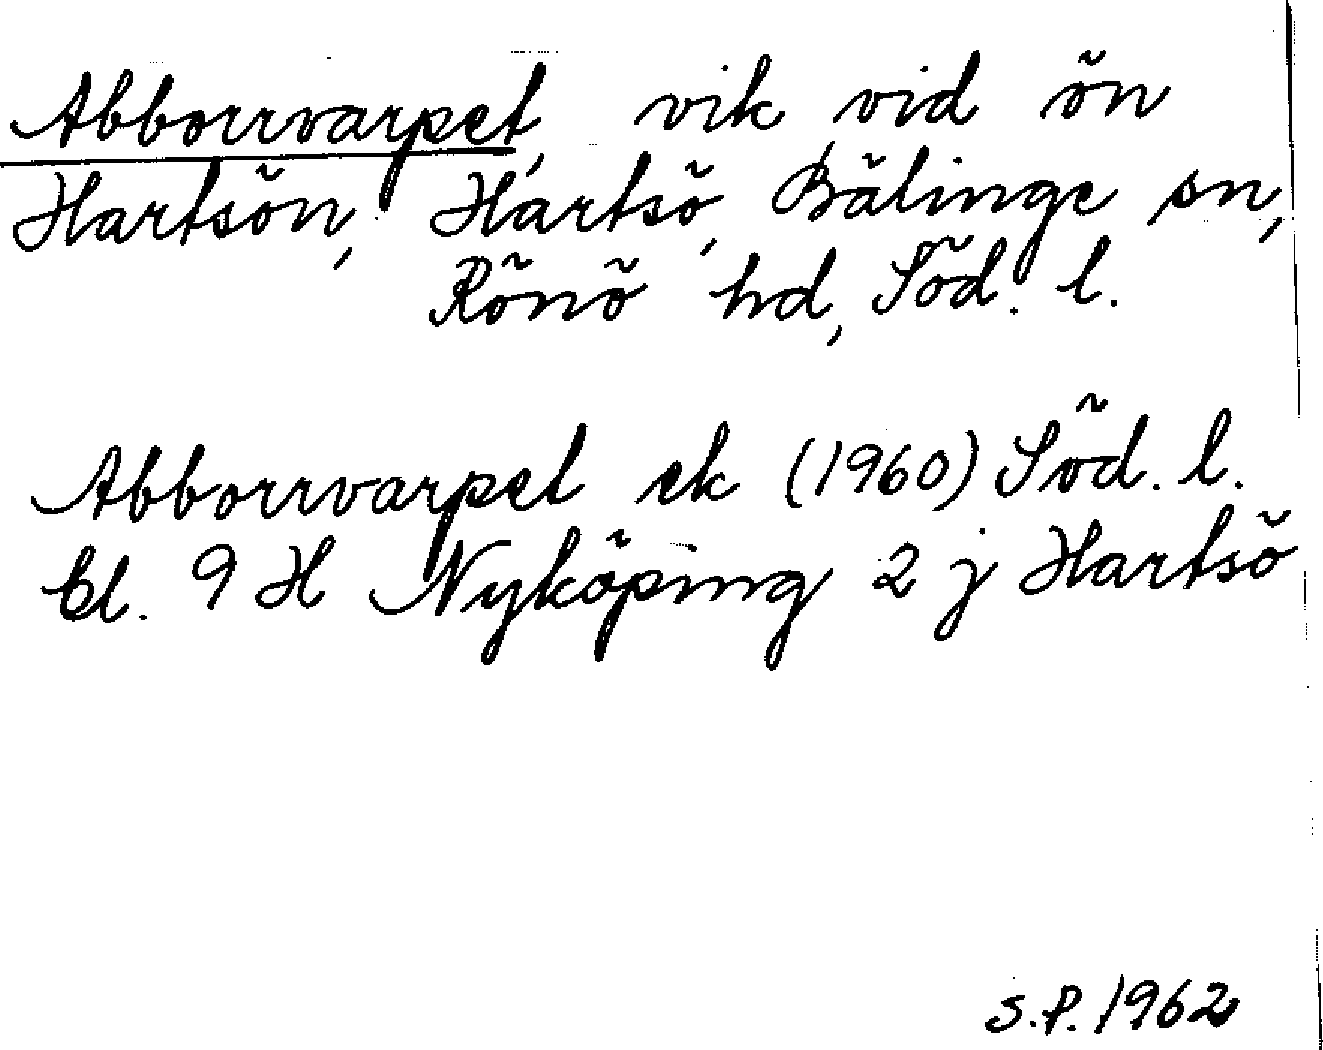 Abborrvarpet, vik vid ön
Hartsön, Hartsö, Bälinge sn,
Rönö hd, Söd. l.
Abborrvarpet ek (1960) Söd. l.
bl. 9 H Nyköping 2 j Hartsö
S.P. 1962